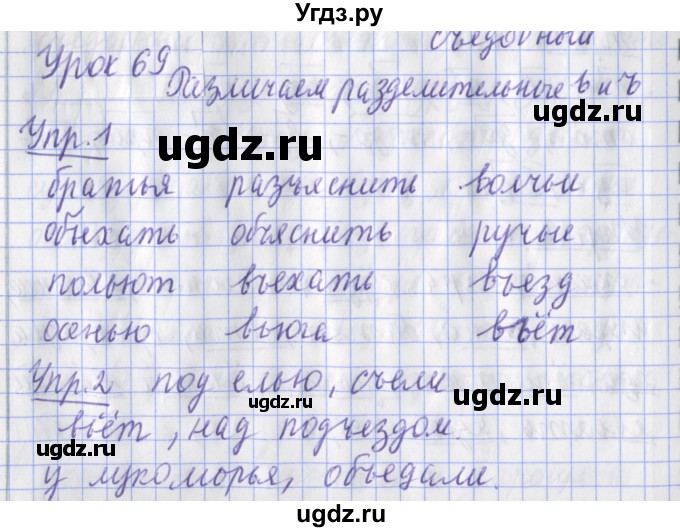 Угдз.ру
съедобный
Урок 69
Различаем разделительные ь и ъ
Упр.1
братья разъяснить волчьи
объехать объяснить ручьи
польют въехать въезд
осенью вьюга вьёт
Упр.2 под елью, съели
вьёт, над подъездом.
у лукоморья, объедали.
ugdz.ru
ugdz.ru
ugdz.ru
ugdz.ru
ugdz.ru
ugdz.ru
ugdz.ru
ugdz.ru
ugdz.ru
ugdz.ru